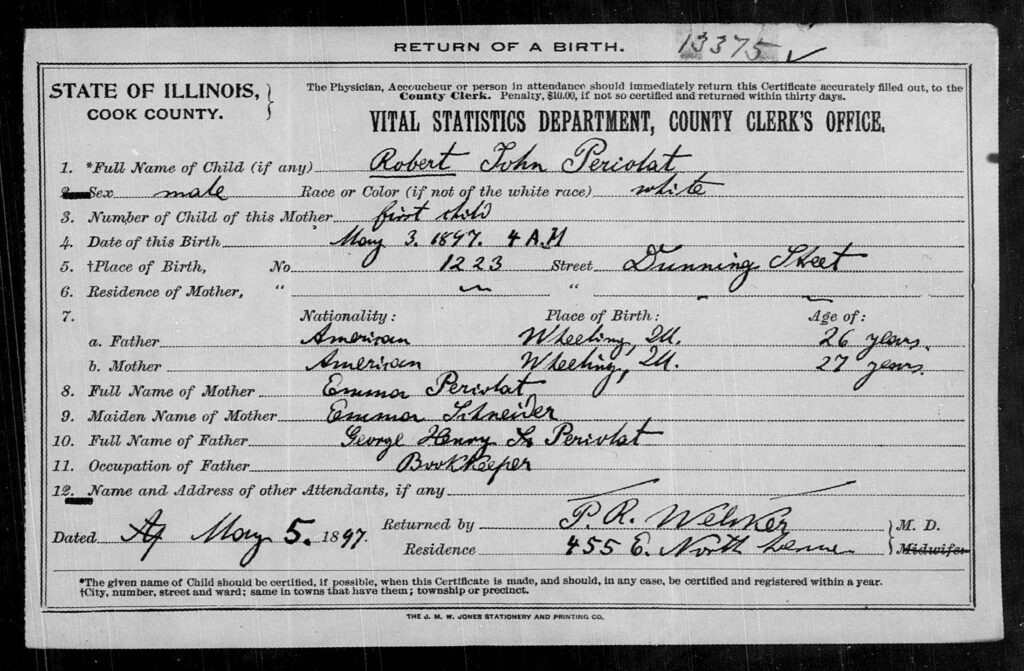 RETURN OF A BIRTH. 13375 ✓
STATE OF ILLINOIS, } The Physician, Accoucheur or person in attendance should immediately return this Certificate accurately filled out, to the
COOK COUNTY. County Clerk. Penalty, $10.00, if not so certified and returned within thirty days.
VITAL STATISTICS DEPARTMENT, COUNTY CLERK'S OFFICE.
1. *Full Name of Child (if any) Robert John Periolat
2. Sex male Race or Color (if not of the white race) white
3. Number of Child of this Mother first child
4. Date of this Birth May 3. 1897. 4 A.M
5. †Place of Birth, No. 1223 Street Dunning Street
6. Residence of Mother, " " 
7. Nationality: Place of Birth: Age of:
a. Father American Wheeling, Ill. 26 years.
b. Mother American Wheeling, Ill. 27 years.
8. Full Name of Mother Emma Periolat
9. Maiden Name of Mother Emma Schneider
10. Full Name of Father George Henry Periolat
11. Occupation of Father Bookkeeper
12. Name and Address of other Attendants, if any
Dated May 5. 1897. Returned by P. R. Welcker } M. D.
Residence 455 E. North Avenue Midwife
*The given name of Child should be certified, if possible, when this Certificate is made, and should, in any case, be certified and registered within a year.
†City, number, street and ward; same in towns that have them; township or precinct.
THE J. M. W. JONES STATIONERY AND PRINTING CO.